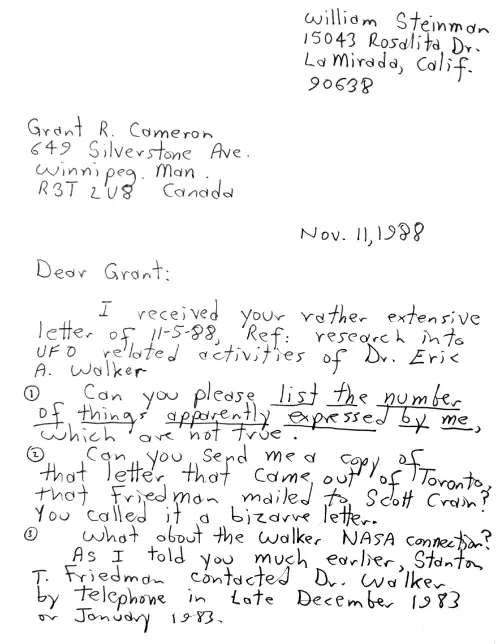 William Steinman
15043 Rosalita Dr.
La Mirada, Calif.
90638
Grant R. Cameron
649 Silverstone Ave.
Winnipeg. Man.
R3T 2V8 Canada
Nov. 11, 1988
Dear Grant:
I received your rather extensive
letter of 11-5-88, Ref: research into
UFO related activities of Dr. Eric
A. Walker
① Can you please list the number
of things apparently expressed by me,
which are not true.
② Can you send me a copy of
that letter that came out of Toronto,
that Friedman mailed to Scott Crain?
You called it a bizarre letter.
③ What about the Walker NASA connection?
As I told you much earlier, Stanton
T. Friedman contacted Dr. Walker
by telephone in Late December 1983
or January 1983.